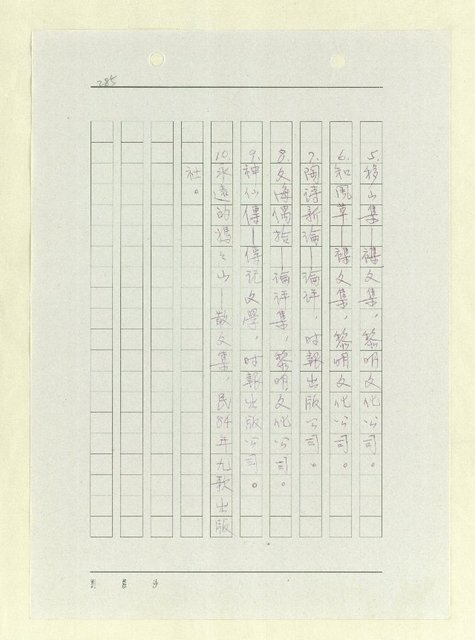 285
5.移山集—襍文集，黎明文化公司。
6.知風草—襍文集，黎明文化公司。
7.陶詩新論—論評，时報出版公司。
8.文海偶拾—論評集，黎明文化公司。
9.神仙傳—傳説文學，时報出版公司。
10.永遠的馮馮山—散文集，民84年九歌出版
社。